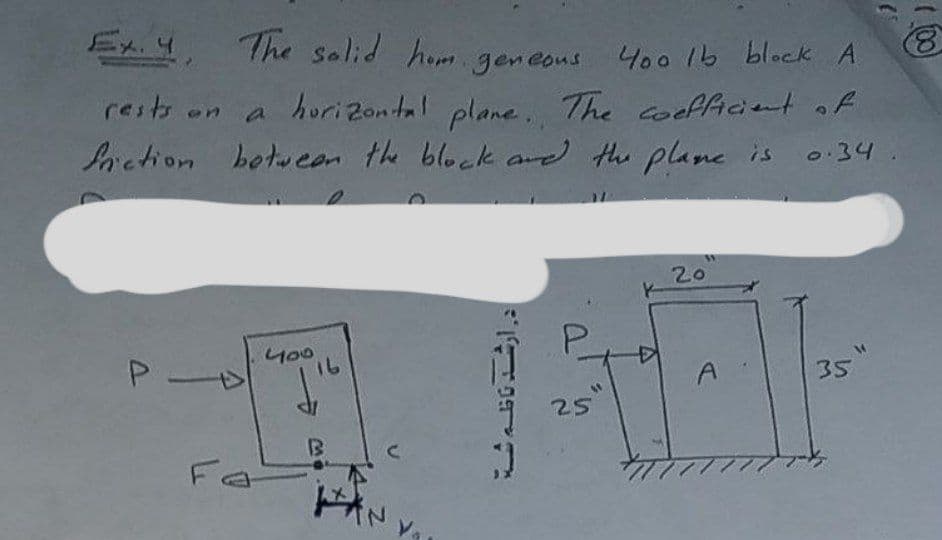 Ex. 4,  The solid hom. geneous 400 lb block A
⑧
rests on a horizontal plane. The coefficient of
friction between the block and the plane is 0.34.
20"
P
400 lb
P
A
35"
25"
B
C
F
x
N